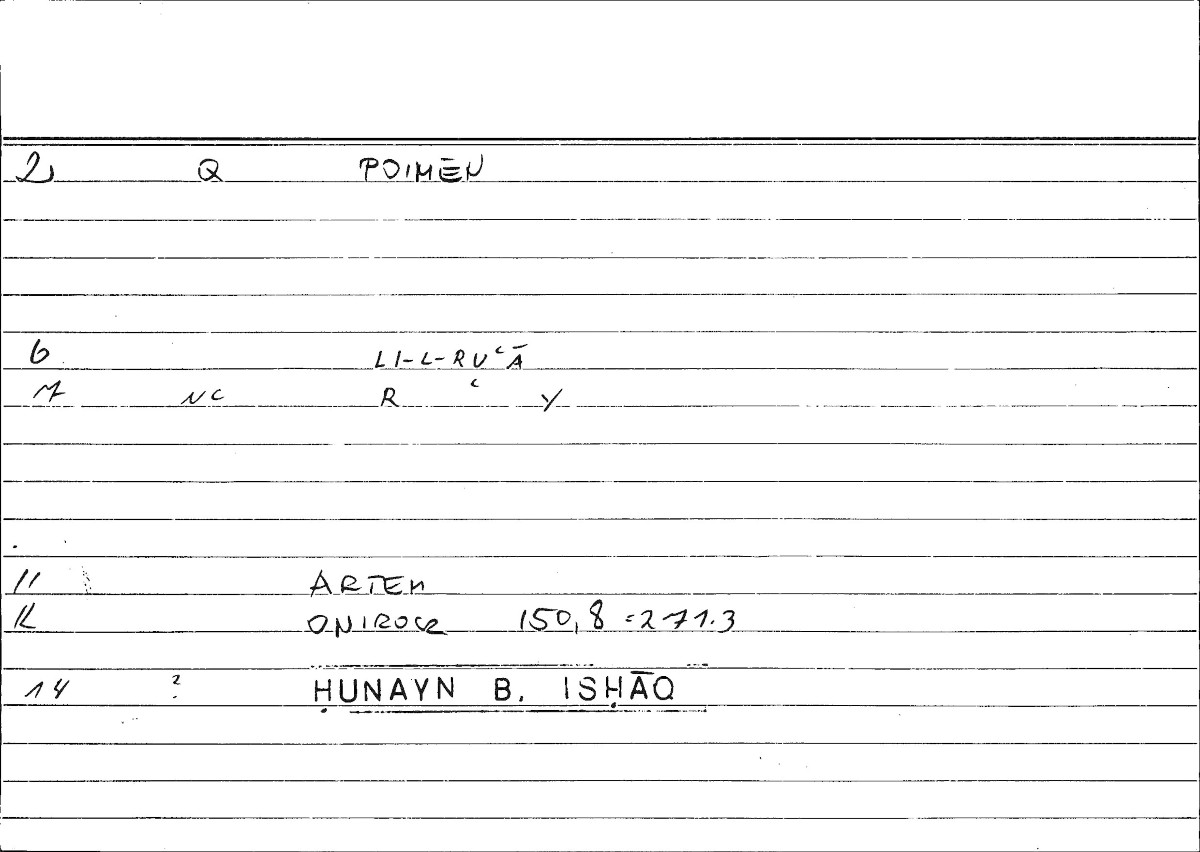 2 Q POIMĒN
6 LI-L-RUʿĀ
7 NC R ʿ Y
11 ARTEM
12 ONIROCR 150,8 = 271.3
14 ? ḤUNAYN B. ISḤĀQ